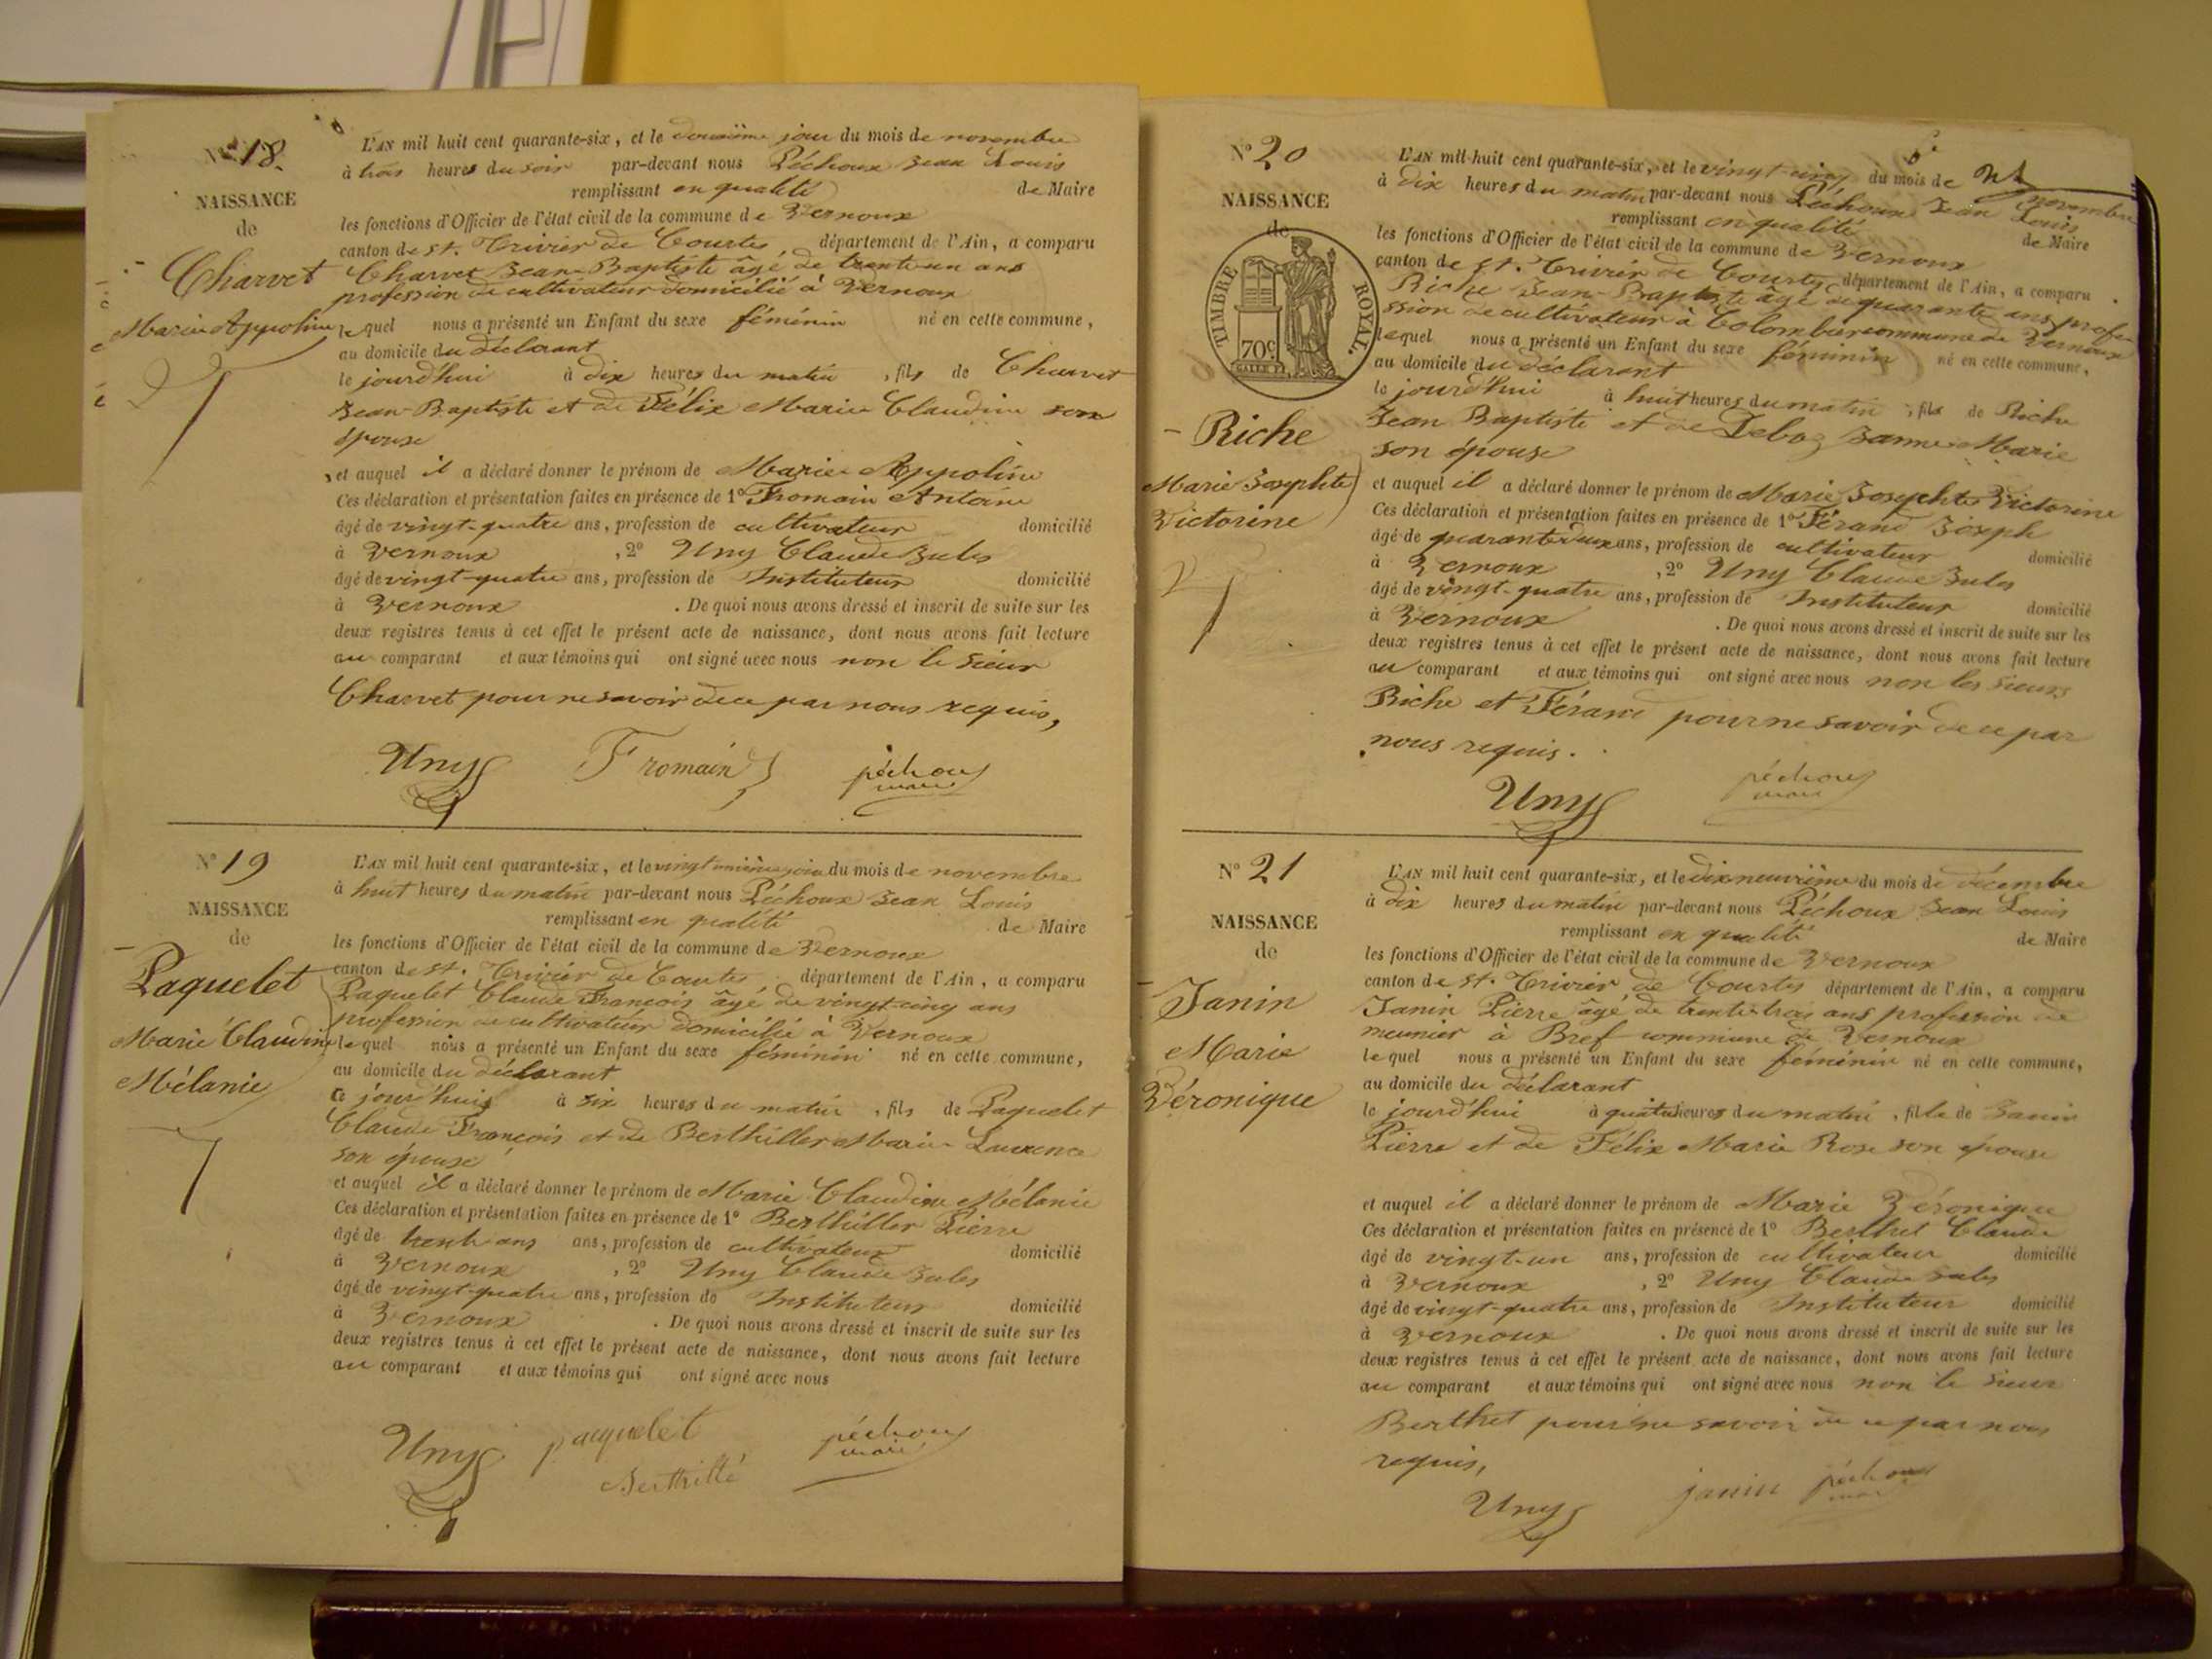 N° 18.
NAISSANCE
de
Charvet
Marie Appoline
L'AN mil huit cent quarante-six, et le douzième jour du mois de novembre
à trois heures du soir par-devant nous Péchoux Jean Louis
remplissant en qualité de Maire
les fonctions d'Officier de l'état civil de la commune de Vernoux
canton de St. Trivier de Courtes, département de l'Ain, a comparu
Charvet Jean-Baptiste âgé de trente un ans
profession de cultivateur domicilié à Vernoux
lequel nous a présenté un Enfant du sexe féminin né en cette commune,
au domicile du déclarant
le jourd'hui à dix heures du matin, fils de Charvet
Jean-Baptiste et de Félix Marie Claudine son
épouse
et auquel il a déclaré donner le prénom de Marie Appoline
Ces déclaration et présentation faites en présence de 1° Fromain Antoine
âgé de vingt-quatre ans, profession de cultivateur domicilié
à Vernoux, 2° Uny Claude Jules
âgé de vingt-quatre ans, profession de Instituteur domicilié
à Vernoux. De quoi nous avons dressé et inscrit de suite sur les
deux registres tenus à cet effet le présent acte de naissance, dont nous avons fait lecture
au comparant et aux témoins qui ont signé avec nous non le sieur
Charvet pour ne savoir de ce par nous requis,
Uny Fromain péchoux
maire
N° 19
NAISSANCE
de
Paquelet
Marie Claudine
Mélanie
L'AN mil huit cent quarante-six, et le vingt unième jour du mois de novembre
à huit heures du matin par-devant nous Péchoux Jean Louis
remplissant en qualité de Maire
les fonctions d'Officier de l'état civil de la commune de Vernoux
canton de St. Trivier de Courtes département de l'Ain, a comparu
Paquelet Claude François âgé de vingt-cinq ans
profession de cultivateur domicilié à Vernoux
lequel nous a présenté un Enfant du sexe féminin né en cette commune,
au domicile du déclarant
ce jourd'hui à six heures du matin, fils de Paquelet
Claude François et de Berthiller Marie Laurence
son épouse
et auquel il a déclaré donner le prénom de Marie Claudine Mélanie
Ces déclaration et présentation faites en présence de 1° Berthiller Pierre
âgé de trente ans ans, profession de cultivateur domicilié
à Vernoux, 2° Uny Claude Jules
âgé de vingt-quatre ans, profession de Instituteur domicilié
à Vernoux. De quoi nous avons dressé et inscrit de suite sur les
deux registres tenus à cet effet le présent acte de naissance, dont nous avons fait lecture
au comparant et aux témoins qui ont signé avec nous
Uny paquelet péchoux
maire
Berthillé
N° 20
NAISSANCE
de
TIMBRE ROYAL.
70c
Riche
Marie Josephte
Victorine
L'AN mil huit cent quarante-six, et le vingt-cinq du mois de
novembre
à dix heures du matin par-devant nous Péchoux Jean Louis
remplissant en qualité de Maire
les fonctions d'Officier de l'état civil de la commune de Vernoux
canton de St. Trivier de Courtes département de l'Ain, a comparu
Riche Jean-Baptiste âgé de quarante ans profe-
ssion de cultivateur à Colombier commune de Vernoux
lequel nous a présenté un Enfant du sexe féminin né en cette commune,
au domicile du déclarant
le jourd'hui à huit heures du matin, fils de Riche
Jean Baptiste et de Deboz Jeanne-Marie
son épouse
et auquel il a déclaré donner le prénom de Marie Josephte Victorine
Ces déclaration et présentation faites en présence de 1° Férand Joseph
âgé de quarante deux ans, profession de cultivateur domicilié
à Vernoux, 2° Uny Claude Jules
âgé de vingt-quatre ans, profession de Instituteur domicilié
à Vernoux. De quoi nous avons dressé et inscrit de suite sur les
deux registres tenus à cet effet le présent acte de naissance, dont nous avons fait lecture
au comparant et aux témoins qui ont signé avec nous non les sieurs
Riche et Férand pour ne savoir de ce par
nous requis.
Uny péchoux
maire
N° 21
NAISSANCE
de
Janin
Marie
Véronique
L'AN mil huit cent quarante-six, et le dix neuvième du mois de décembre
à dix heures du matin par-devant nous Péchoux Jean Louis
remplissant en qualité de Maire
les fonctions d'Officier de l'état civil de la commune de Vernoux
canton de St. Trivier de Courtes département de l'Ain, a comparu
Janin Pierre âgé de trente-trois ans profession de
meunier à Bref commune de Vernoux
lequel nous a présenté un Enfant du sexe féminin né en cette commune,
au domicile du déclarant
le jourd'hui à quatre heures du matin, fille de Janin
Pierre et de Félix Marie Rose son épouse
et auquel il a déclaré donner le prénom de Marie Véronique
Ces déclaration et présentation faites en présence de 1° Berthet Claude
âgé de vingt-un ans, profession de cultivateur domicilié
à Vernoux, 2° Uny Claude Jules
âgé de vingt-quatre ans, profession de Instituteur domicilié
à Vernoux. De quoi nous avons dressé et inscrit de suite sur les
deux registres tenus à cet effet le présent acte de naissance, dont nous avons fait lecture
au comparant et aux témoins qui ont signé avec nous non le sieur
Berthet pour ne savoir de ce par nous
requis,
Uny janin péchoux
maire